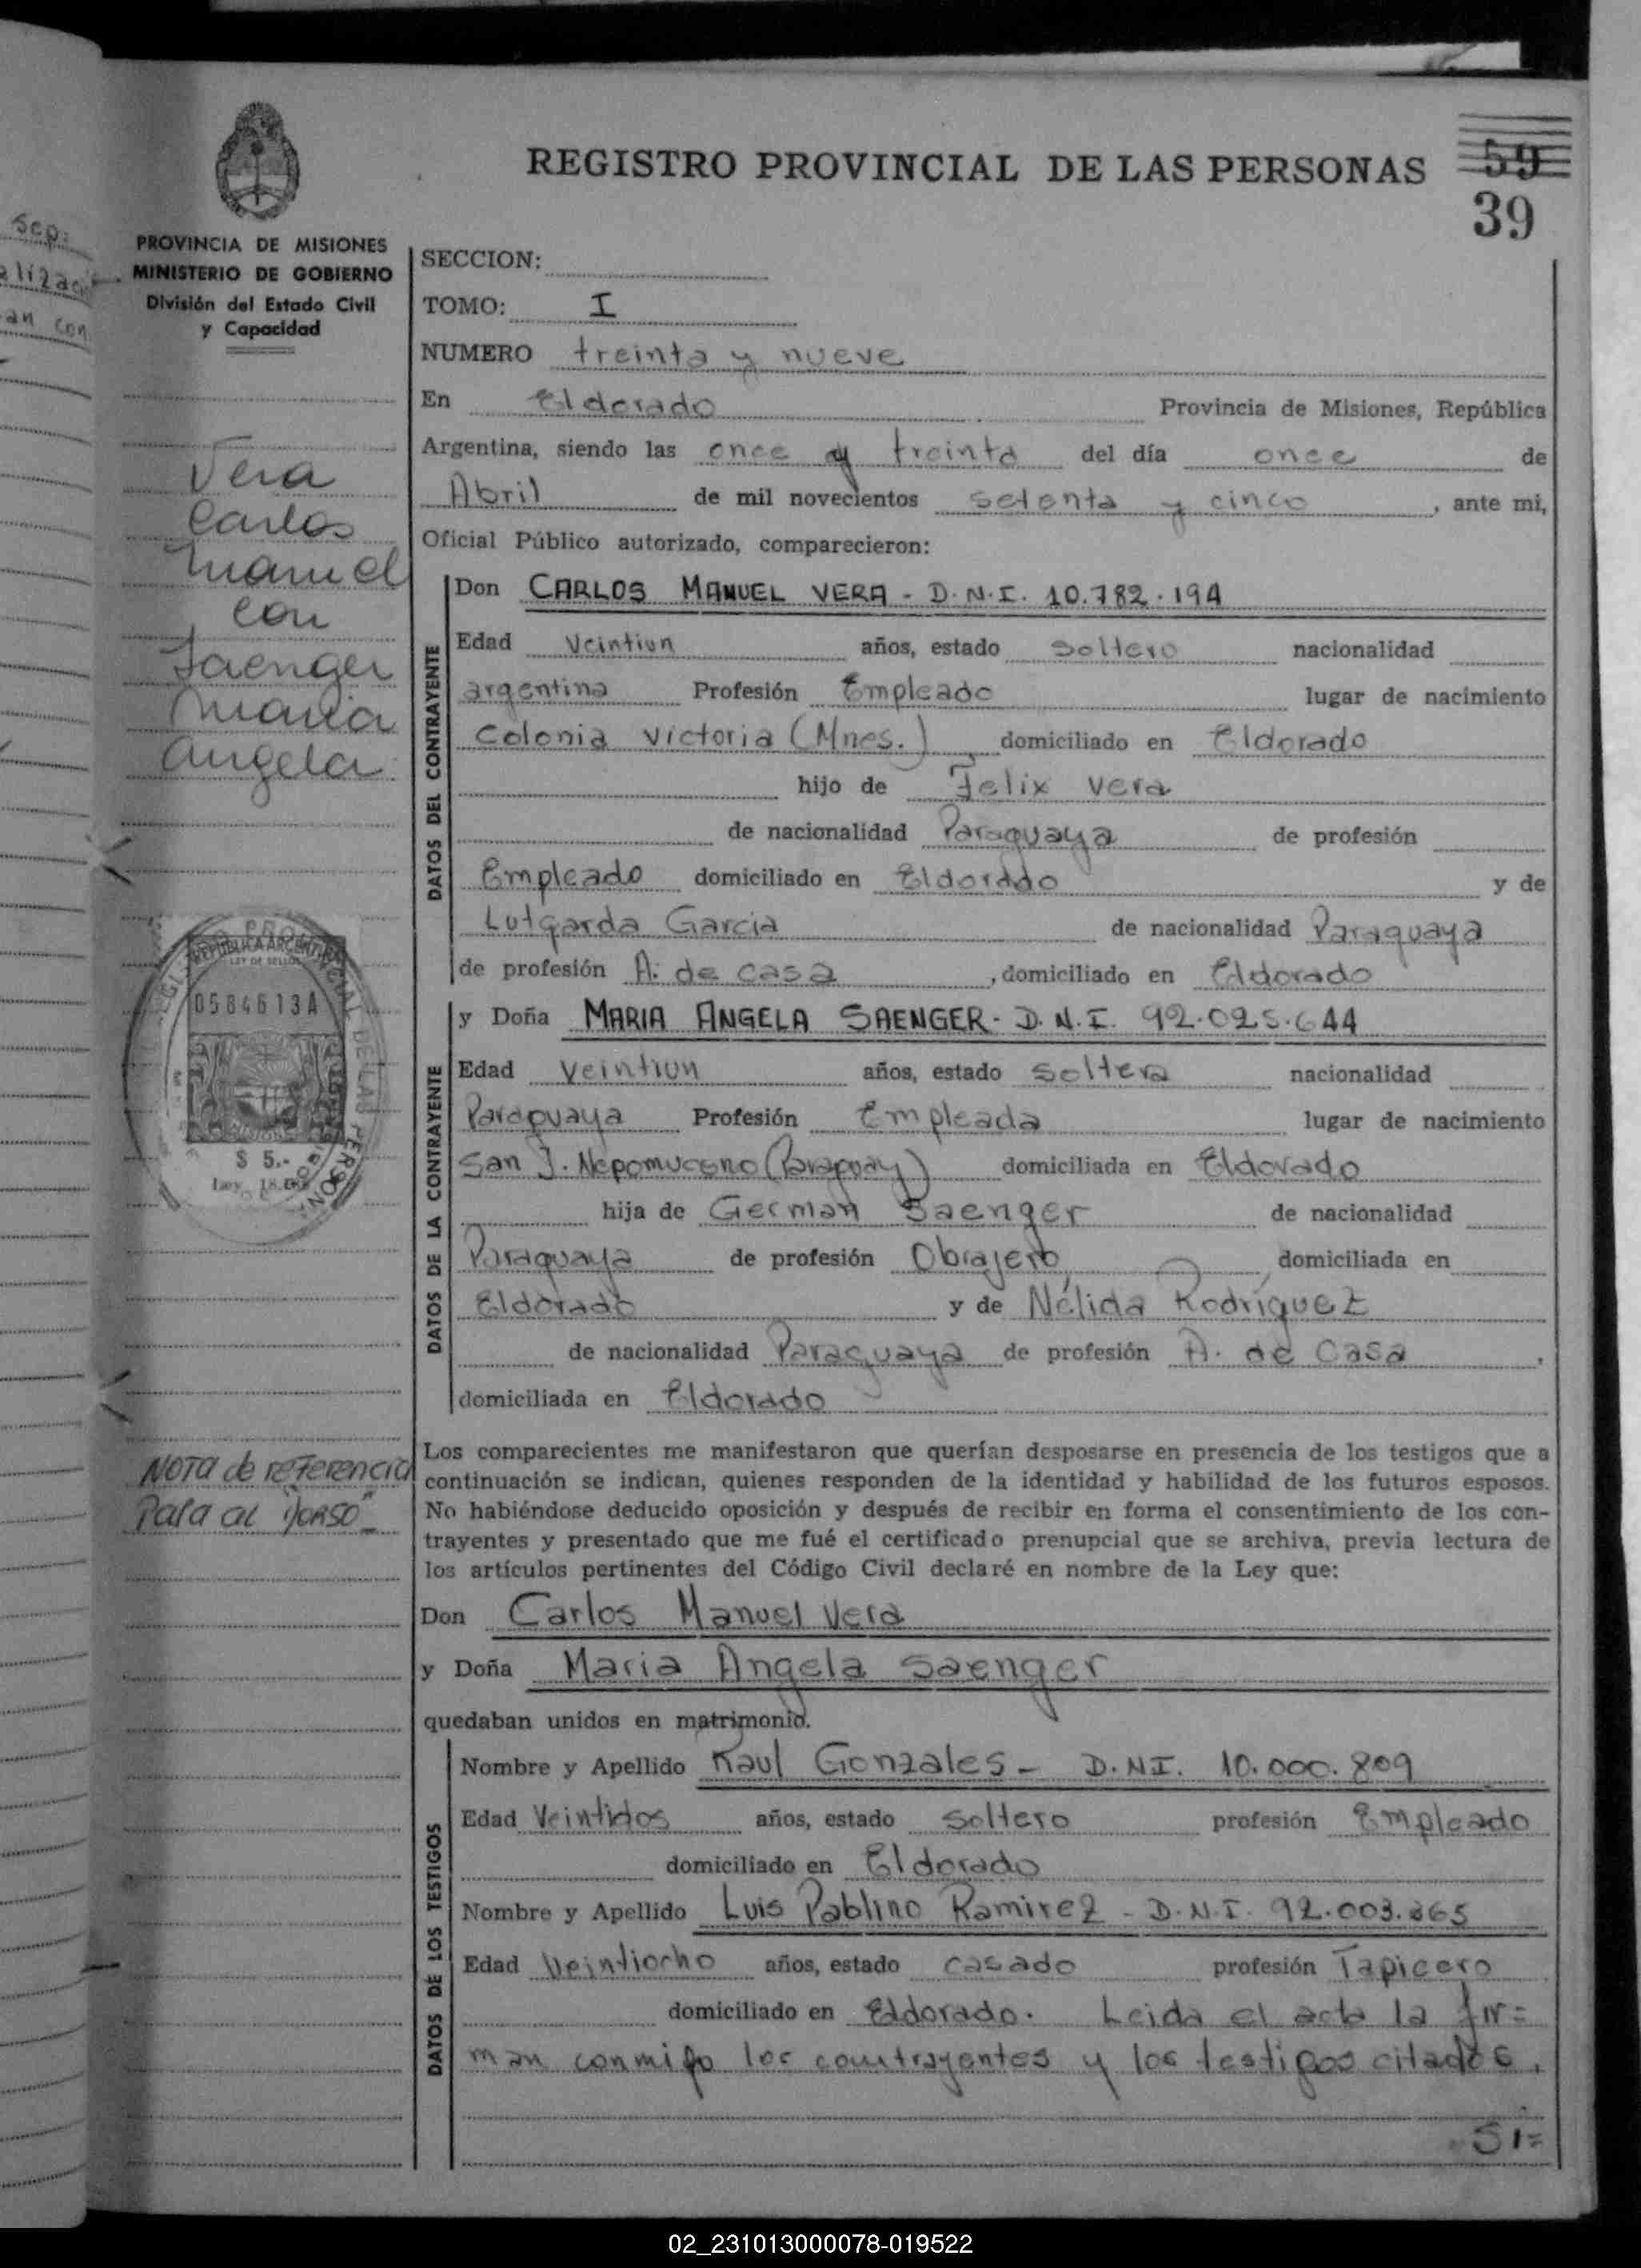 REGISTRO PROVINCIAL DE LAS PERSONAS 59
39
PROVINCIA DE MISIONES
MINISTERIO DE GOBIERNO
División del Estado Civil
y Capacidad
Sep.
an con
Vera
Carlos
Manuel
con
Saenger
Maria
Angela
REPUBLICA ARGENTINA
LEY DE SELLOS
0584613A
$ 5.-
Ley
Nota de referencia
Pasa al Dorso"
SECCION:
TOMO: I
NUMERO treinta y nueve
En Eldorado Provincia de Misiones, República
Argentina, siendo las once y treinta del día once de
Abril de mil novecientos setenta y cinco, ante mi,
Oficial Público autorizado, comparecieron:
DATOS DEL CONTRAYENTE
Don CARLOS MANUEL VERA - D.N.I. 10.782.194
Edad Veintiun años, estado Soltero nacionalidad
argentina Profesión Empleado lugar de nacimiento
Colonia Victoria (Mnes.) domiciliado en Eldorado
hijo de Felix Vera
de nacionalidad Paraguaya de profesión
Empleado domiciliado en Eldorado y de
Lutgarda Garcia de nacionalidad Paraguaya
de profesión A. de casa, domiciliado en Eldorado
DATOS DE LA CONTRAYENTE
y Doña MARIA ANGELA SAENGER - D.N.I. 92.025.644
Edad Veintiun años, estado Soltera nacionalidad
Paraguaya Profesión Empleada lugar de nacimiento
San J. Nepomuceno (Paraguay) domiciliada en Eldorado
hija de German Saenger de nacionalidad
Paraguaya de profesión Obrajero domiciliada en
Eldorado y de Nélida Rodríguez
de nacionalidad Paraguaya de profesión A. de Casa,
domiciliada en Eldorado
Los comparecientes me manifestaron que querían desposarse en presencia de los testigos que a
continuación se indican, quienes responden de la identidad y habilidad de los futuros esposos.
No habiéndose deducido oposición y después de recibir en forma el consentimiento de los con-
trayentes y presentado que me fué el certificado prenupcial que se archiva, previa lectura de
los artículos pertinentes del Código Civil declaré en nombre de la Ley que:
Don Carlos Manuel Vera
y Doña Maria Angela Saenger
quedaban unidos en matrimonio.
DATOS DE LOS TESTIGOS
Nombre y Apellido Raul Gonzales - D.N.I. 10.000.809
Edad Veintidos años, estado Soltero profesión Empleado
domiciliado en Eldorado
Nombre y Apellido Luis Pablino Ramirez - D.N.I. 92.003.865
Edad Veintiocho años, estado casado profesión Tapicero
domiciliado en Eldorado. Leida el acta la fir=
man conmigo los contrayentes y los testigos citados.
Si=
02_231013000078-019522